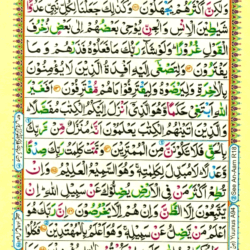 وَلٰكِنَّ اَكْثَرَهُمْ يَجْهَلُوْنَ وَكَذٰلِكَ جَعَلْنَا لِكُلِّ نَبِيٍّ عَدُوًّا
شَيٰطِيْنَ الْاِنْسِ وَالْجِنِّ يُوْحِيْ بَعْضُهُمْ اِلٰى بَعْضٍ زُخْرُفَ
الْقَوْلِ غُرُوْرًا وَلَوْ شَآءَ رَبُّكَ مَا فَعَلُوْهُ فَذَرْهُمْ وَمَا
يَفْتَرُوْنَ وَلِتَصْغٰۤى اِلَيْهِ اَفْـِٕدَةُ الَّذِيْنَ لَا يُؤْمِنُوْنَ
بِالْاٰخِرَةِ وَلِيَرْضَوْهُ وَلِيَقْتَرِفُوْا مَا هُمْ مُّقْتَرِفُوْنَ اَفَغَيْرَ
اللّٰهِ اَبْتَغِيْ حَكَمًا وَّهُوَ الَّذِيْۤ اَنْزَلَ اِلَيْكُمُ الْكِتٰبَ مُفَصَّلًا
وَالَّذِيْنَ اٰتَيْنٰهُمُ الْكِتٰبَ يَعْلَمُوْنَ اَنَّهٗ مُنَزَّلٌ مِّنْ رَّبِّكَ
بِالْحَقِّ فَلَا تَكُوْنَنَّ مِنَ الْمُمْتَرِيْنَ وَتَمَّتْ كَلِمَتُ رَبِّكَ صِدْقًا
وَّعَدْلًا لَا مُبَدِّلَ لِكَلِمٰتِهٖ وَهُوَ السَّمِيْعُ الْعَلِيْمُ وَاِنْ
تُطِعْ اَكْثَرَ مَنْ فِي الْاَرْضِ يُضِلُّوْكَ عَنْ سَبِيْلِ اللّٰهِ اِنْ
يَّتَّبِعُوْنَ اِلَّا الظَّنَّ وَاِنْ هُمْ اِلَّا يَخْرُصُوْنَ اِنَّ رَبَّكَ هُوَ
اَعْلَمُ مَنْ يَّضِلُّ عَنْ سَبِيْلِهٖ وَهُوَ اَعْلَمُ بِالْمُهْتَدِيْنَ